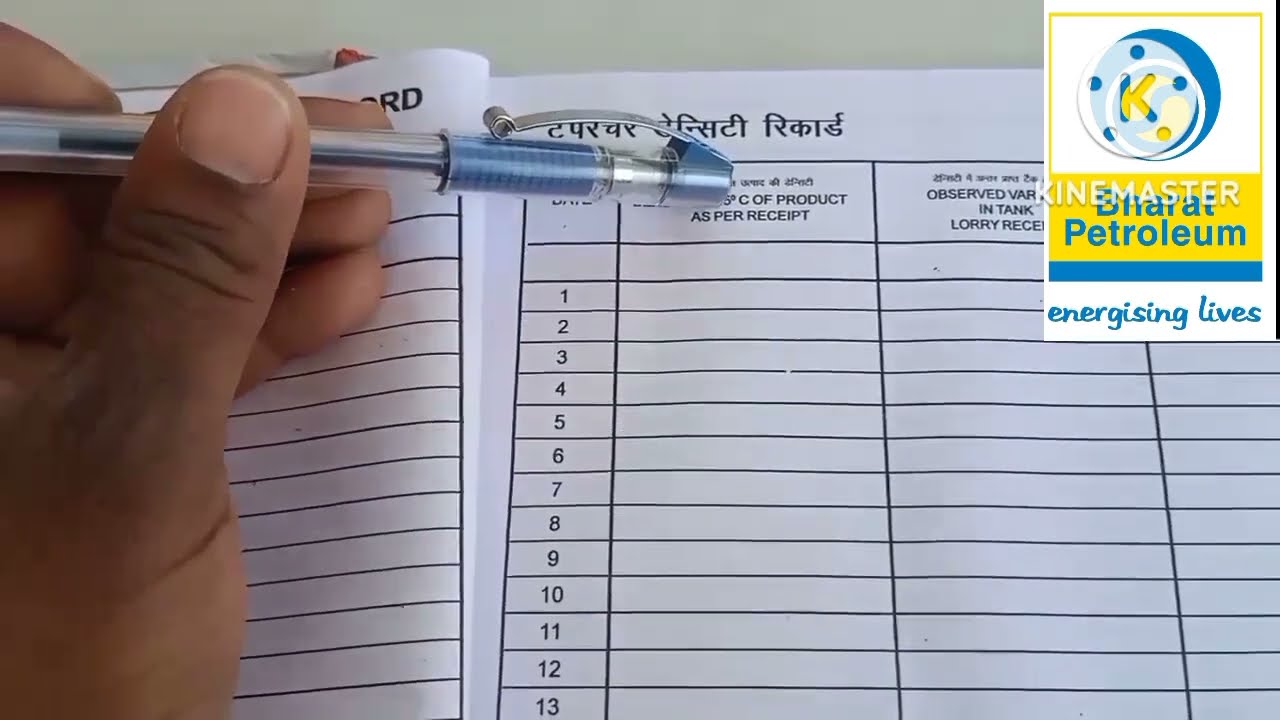 ORD
टेंपरेचर डेन्सिटी रिकार्ड
उत्पाद की डेन्सिटी
C OF PRODUCT
AS PER RECEIPT
डेन्सिटी में अन्तर प्राप्त टैंक
OBSERVED VAR
IN TANK
LORRY RECEI
1
2
3
4
5
6
7
8
9
10
11
12
13
K
KINEMASTER
Bharat
Petroleum
energising lives